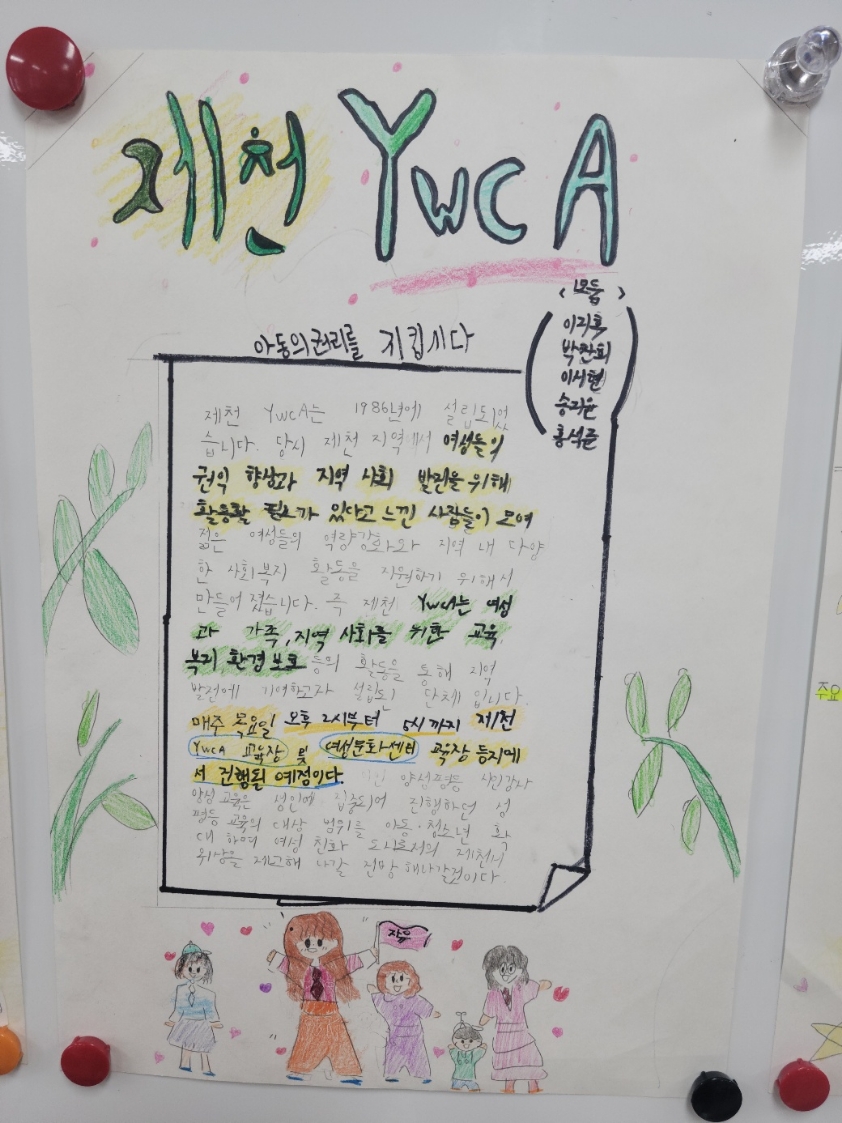 제천 YwcA
<모둠>
이지혹
박찬희
이서현
송지윤
홍석준
아동의권리를 지킵시다
제천 YwcA는 1986년에 설립되었
습니다. 당시 제천 지역에서 여성들의
권익 향상과 지역 사회 발전을 위해
활동할 필요가 있다고 느낀 사람들이 모여
젊은 여성들의 역량강화와 지역 내 다양
한 사회복지 활동을 지원하기 위해서
만들어 졌습니다. 즉 제천 YwcA는 여성
과 가족, 지역 사회를 위한 교육,
복지 환경 보호 등의 활동을 통해 지역
발전에 기여하고자 설립된 단체 입니다.
매주 목요일 오후 2시부터 5시 까지 제천
YwcA 교육장 및 여성문화센터 교육장 등지에
서 진행될 예정이다. 양성평등 시민강사
양성 교육은 성인에 집중되어 진행하던 성
평등 교육의 대상 범위를 아동·청소년 확
대 하여 여성 친화 도시로서의 제천시
위상을 제고해 나갈 전망 해나갈것이다.
자유
주요